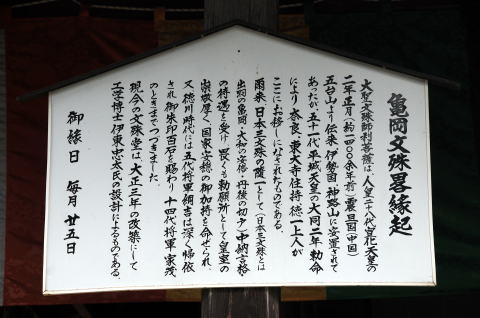 亀岡文殊畧縁起
大聖文殊師利菩薩は、人皇二十八代宣化天皇の
二年正月(約一四〇〇余年前)震旦国(中国)
五台山より伝来 伊勢国 神路山に安置されて
あったが、五十一代平城天皇の大同二年勅命
により奈良、東大寺住持徳一上人が
ここにお移しになされたものである。
爾来、日本三文殊の随一として(日本三文殊とは
出羽の亀岡、大和の安倍、丹後の切戸)中納言格
の待遇を受け 畏くも勅願所として皇室の
崇敬厚く、国家安穏の御加持を命ぜられ、
又、徳川時代には五代将軍綱吉は深く帰依
され 御朱印百石を賜わり 十四代将軍家茂
のときまでつづきました。
現今の文殊堂は、大正三年の改築にして
工学博士伊東忠太氏の設計によるものである。
御縁日 毎月 廿五日